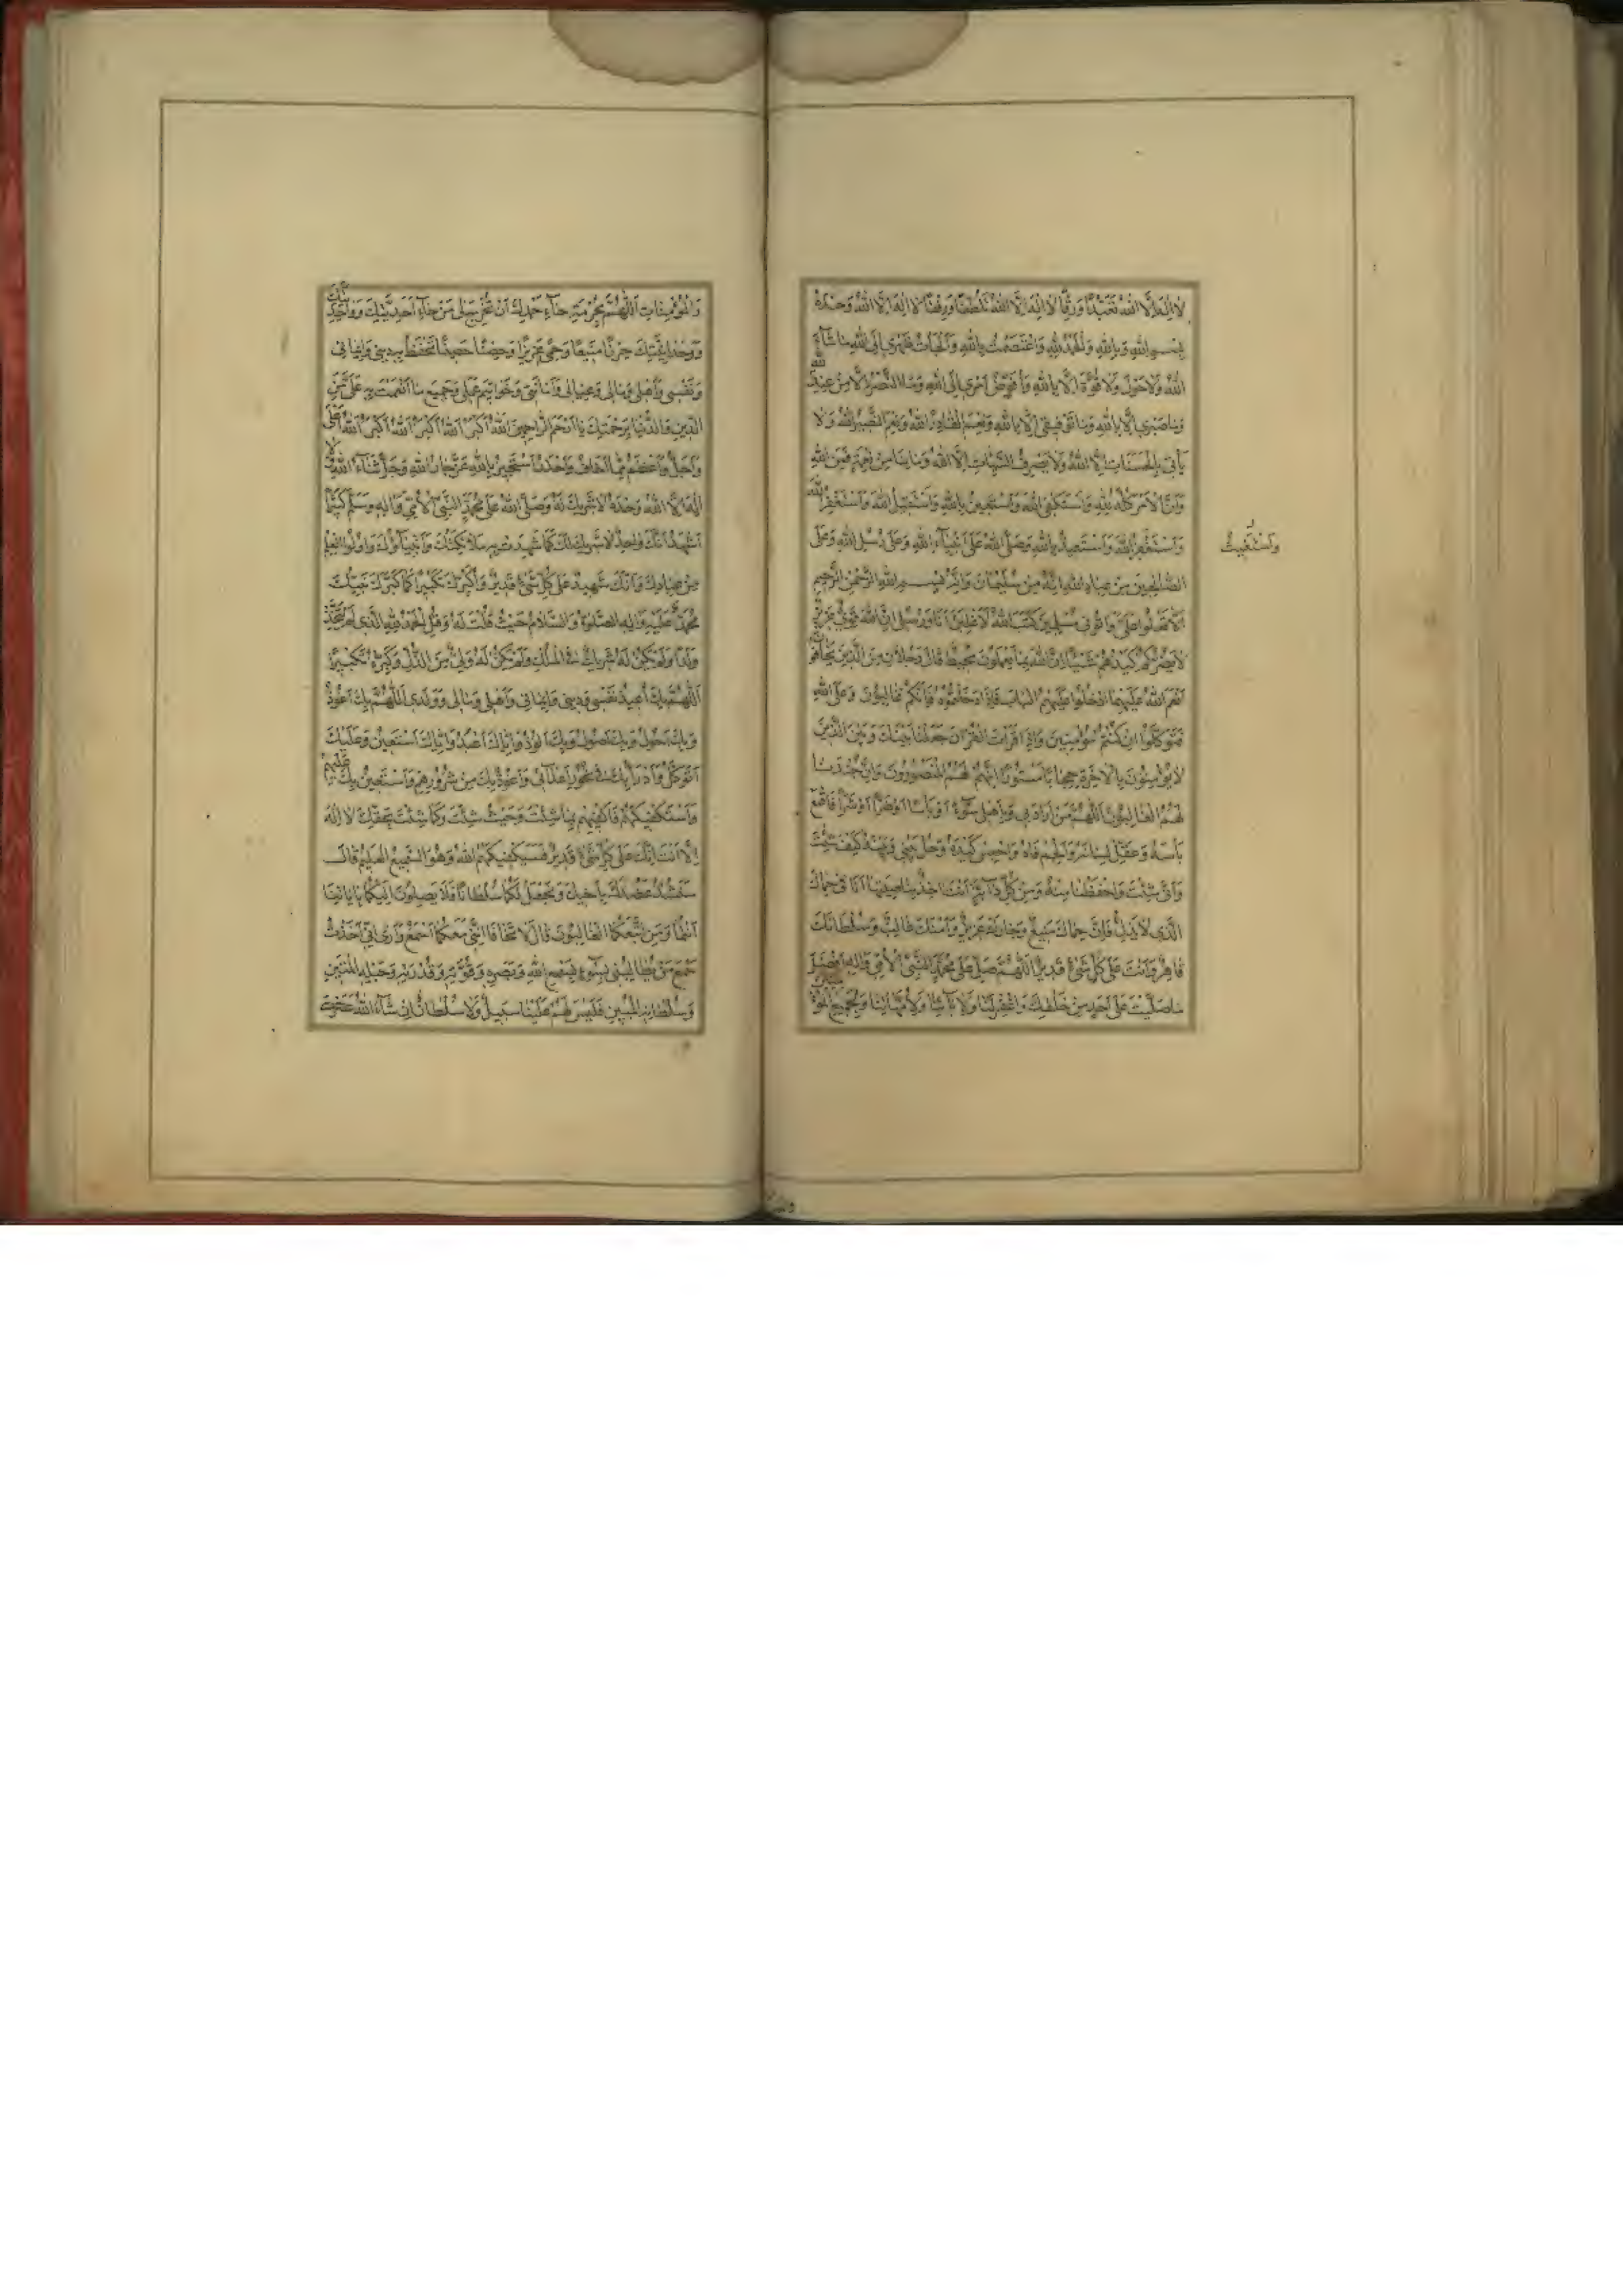 لا إله إلا الله تعبدا ورقا لا إله إلا الله تلطفا ورفقا لا إله إلا الله وحده
بسم الله وبالله والحمد لله واعتصمت بالله وألجأت ظهري إلى الله ما شاء
الله ولا حول ولا قوة إلا بالله وأفوض أمري إلى الله وما النصر إلا من عند الله
وما صبري إلا بالله وما توفيقي إلا بالله ونعم القادر الله ونعم النصير الله ولا
يأتي بالحسنات إلا الله ولا يصرف السيئات إلا الله وما بنا من نعمة فمن الله
وإن الأمر كله لله وأستكفي الله وأستعين بالله وأستقيل الله وأستغفر الله
وأستغفر الله وأستعيذ بالله وصلى الله على أنبياء الله وعلى رسل الله وعلى
الصالحين من عباد الله إنه من سليمان وإنه بسم الله الرحمن الرحيم
ألا تعلوا علي وأتوني مسلمين كتب الله لأغلبن أنا ورسلي إن الله قوي عزيز
لا يضركم كيدهم شيئا إن الله بما يعملون محيط قال رجلان من الذين يخافون
أنعم الله عليهما ادخلوا عليهم الباب فإذا دخلتموه فإنكم غالبون وعلى الله
فتوكلوا إن كنتم مؤمنين وإذا قرأت القرآن جعلنا بينك وبين الذين
لا يؤمنون بالآخرة حجابا مستورا إنهم لهم المنصورون وإن جندنا
لهم الغالبون اللهم من أراد بي وبأهلي سوءا أو بأسا أو ضرا أو شرا فاقمع
بأسه وعقل لسانه وألجم فاه واحصر كيده وحل بيني وبينه كيف شئت
وأنى شئت واحفظنا منه ومن كل دابة أنت آخذ بناصيتها أنا في حماك
الذي لا يذل فإن حماك منيع وجارك عزيز وأمنك غالب وسلطانك
قاهر وأنت على كل شيء قدير اللهم صل على محمد النبي الأمي وآله أفضل
ما صليت على أحد من خلقك واغفر لنا ولآبائنا ولأمهاتنا ولجميع
وأستغيث
والمؤمنات اللهم بحرمة حاء حمدك أن تخرج لي من حاء أحديتك
ووحدانيتك حرزا منيعا وحمى عزيزا وحصنا حصينا تحفظ به ديني وإيماني
ونفسي وأهلي ومالي وعيالي وأمانتي وخواتيم عملي وجميع ما أنعمت به علي من
الدين والدنيا برحمتك يا أرحم الراحمين الله أكبر الله أكبر الله أكبر الله أعلى
وأجل وأعظم مما أخاف وأحذر أستجير بالله عز جار الله وجل ثناء الله لا
إله إلا الله وحده لا شريك له وصلى الله على محمد النبي الأمي وآله وسلم كثيرا
أشهد أنك واحد لا شريك لك كما شهدت به ملائكتك وأنبياؤك وأولوا العلم
من عبادك وأنك شهيد على كل شيء قدير وأكبرك تكبيرا كما كبرك نبيك
محمد عليه وآله الصلوة والسلام حيث قلت له وقل الحمد لله الذي لم يتخذ
ولدا ولم يكن له شريك في الملك ولم يكن له ولي من الذل وكبره تكبيرا
اللهم بك أعيذ نفسي وديني وإيماني وأهلي ومالي وولدي اللهم بك أعوذ
وبك أحول وبك أصول وبك ألوذ وإياك أعبد وإياك أستعين وعليك
أتوكل وأدرأ بك في نحور أعدائي وأعوذ بك من شرورهم وأستعين بك عليهم
وأستكفيكهم فاكفنيهم بما شئت وحيث شئت وكما شئت بحقك لا إله
إلا أنت إنك على كل شيء قدير فسيكفيكهم الله وهو السميع العليم قال
سنشد عضدك بأخيك ونجعل لكما سلطانا فلا يصلون إليكما بآياتنا
أنتما ومن اتبعكما الغالبون قال لا تخافا إنني معكما أسمع وأرى إني أخذت
سمع من يطالبني بسوء بسمع الله وبصره وقوته وقدرته وحبله المتين
وسلطانه المبين فليس لهم علينا سبيل ولا سلطان إن شاء الله